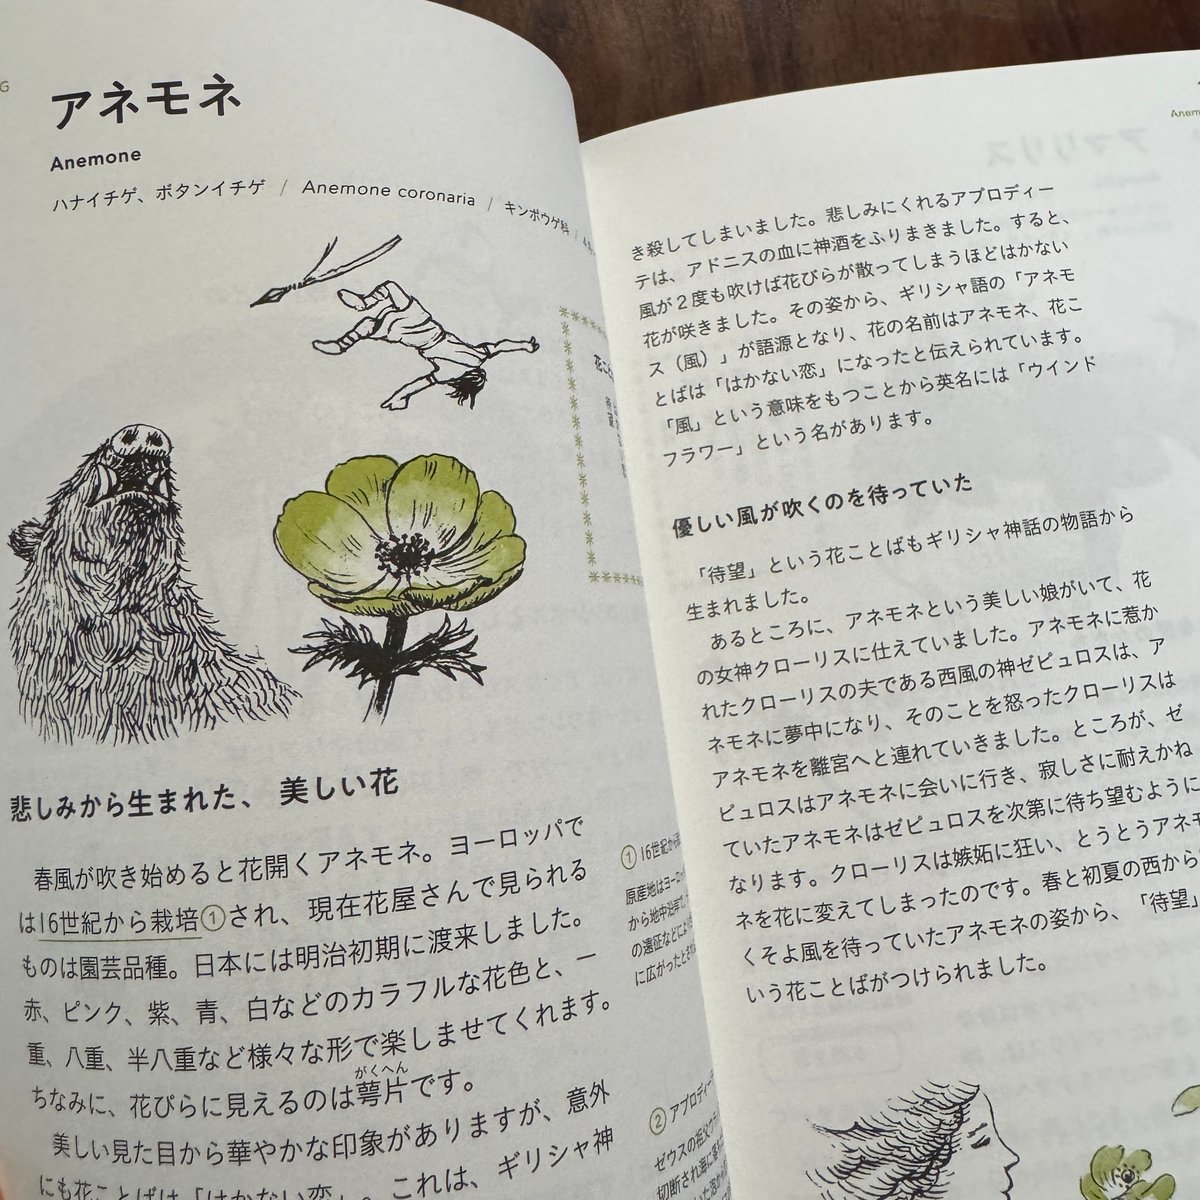 アネモネ
Anemone
ハナイチゲ、ボタンイチゲ / Anemone coronaria / キンポウゲ科 /
悲しみから生まれた、美しい花
春風が吹き始めると花開くアネモネ。ヨーロッパで
は16世紀から栽培①され、現在花屋さんで見られる
ものは園芸品種。日本には明治初期に渡来しました。
赤、ピンク、紫、青、白などのカラフルな花色と、一
重、八重、半八重など様々な形で楽しませてくれます。
ちなみに、花びらに見えるのは萼片です。
がくへん
美しい見た目から華やかな印象がありますが、意外
にも花ことばは「はかない恋」。これは、ギリシャ神
① 16世紀から
原産地はヨーロッ
から地中海沿岸で
の遠征などにより
に広がったとされ
② アプロディーテ
ゼウスの祖父ウラ
切断され海に
き殺してしまいました。悲しみにくれるアプロディー
テは、アドニスの血に神酒をふりまきました。すると、
風が2度も吹けば花びらが散ってしまうほどはかない
花が咲きました。その姿から、ギリシャ語の「アネモ
ス（風）」が語源となり、花の名前はアネモネ、花こ
とばは「はかない恋」になったと伝えられています。
「風」という意味をもつことから英名には「ウインド
フラワー」という名があります。
優しい風が吹くのを待っていた
「待望」という花ことばもギリシャ神話の物語から
生まれました。
あるところに、アネモネという美しい娘がいて、花
の女神クローリスに仕えていました。アネモネに惹か
れたクローリスの夫である西風の神ゼピュロスは、ア
ネモネに夢中になり、そのことを怒ったクローリスは
アネモネを離宮へと連れていきました。ところが、ゼ
ピュロスはアネモネに会いに行き、寂しさに耐えかね
ていたアネモネはゼピュロスを次第に待ち望むように
なります。クローリスは嫉妬に狂い、とうとうアネモ
ネを花に変えてしまったのです。春と初夏の西から
くそよ風を待っていたアネモネの姿から、「待望」
いう花ことばがつけられました。